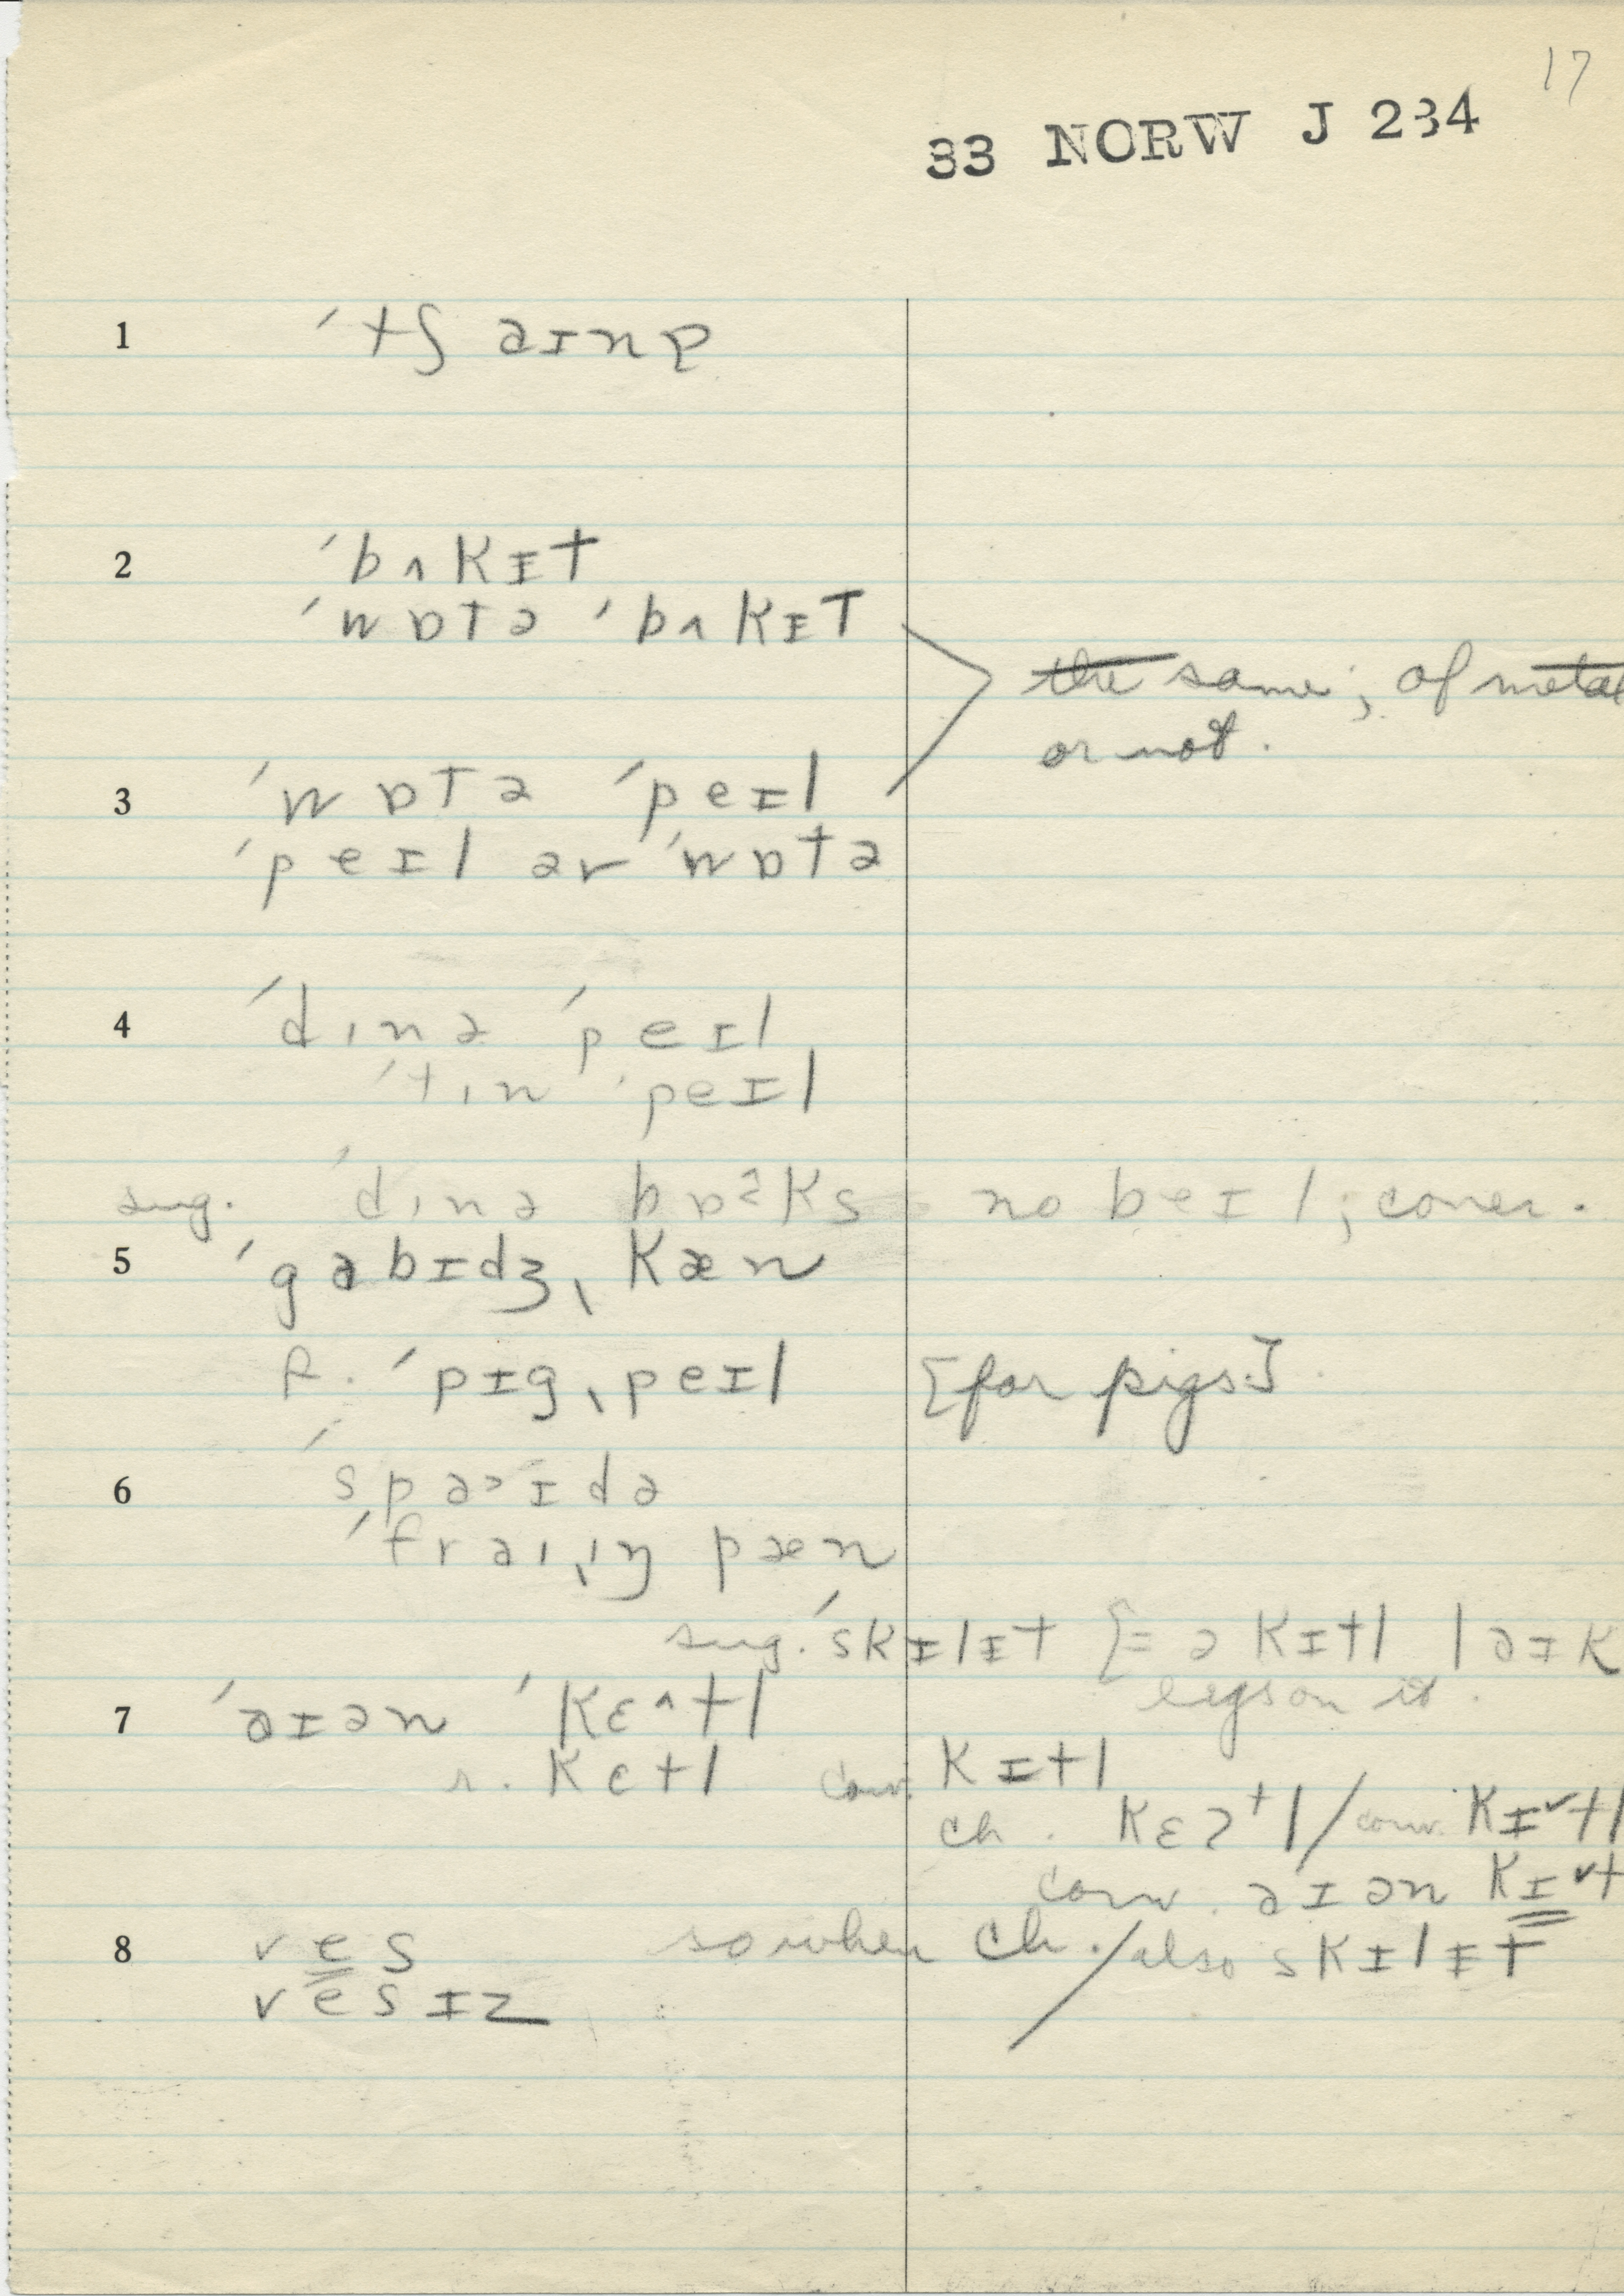 17
33 NORW J 234
1 ˈtʃaɪnɐ
2 ˈbʌkɪt
ˈwɒtə ˈbʌkɪt
the same; of metal
or not.
3 ˈwɒtə ˈpeɪl
ˈpeɪl ər ˈwɒtə
4 ˈdɪnə ˈpeɪl
ˈtɪn ˈpeɪl
sug. ˈdɪnə bɒˀks no beɪl; cover.
5 ˈgabɪdʒˌkæn
f. ˈpɪgˌpeɪl [for pigs]
6 ˈspaˑɪdə
ˈfraɪˌɪŋ pæn
sug. ˈskɪlɪt [= ə kɪtl laɪk
legs on it.
7 ˈaɪən ˈkɛ^tl
r. ketl conv. kɪtl
ch. kɛˀtl / conv. kɪ˅tl
conv. aɪən kɪ˅t
8 ves so when ch. / also skɪlɪt
vesɪz